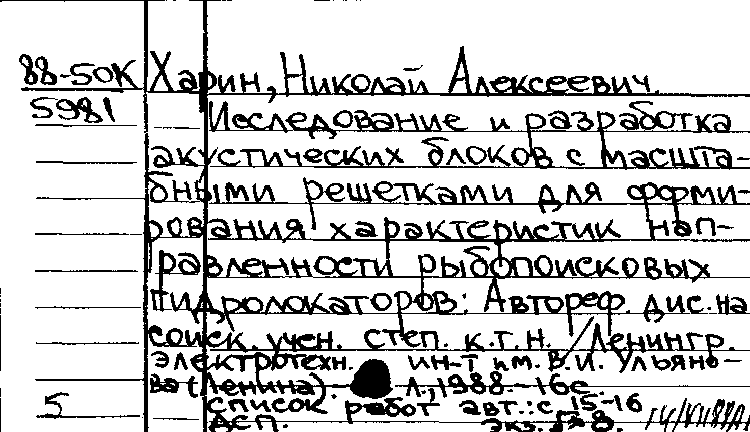 88-50К Харин, Николай Алексеевич.
5981 Исследование и разработка
акустических блоков с масшта-
бными решетками для форми-
рования характеристик нап-
равленности рыбопоисковых
гидролокаторов: Автореф. дис. на
соиск. учен. степ. к.т.н. / Ленингр.
электротехн. ин-т им. В.И. Ульяно-
ва (Ленина). - Л., 1988. - 16с.
5 список работ авт.: с. 15-16
ДСП. экз.